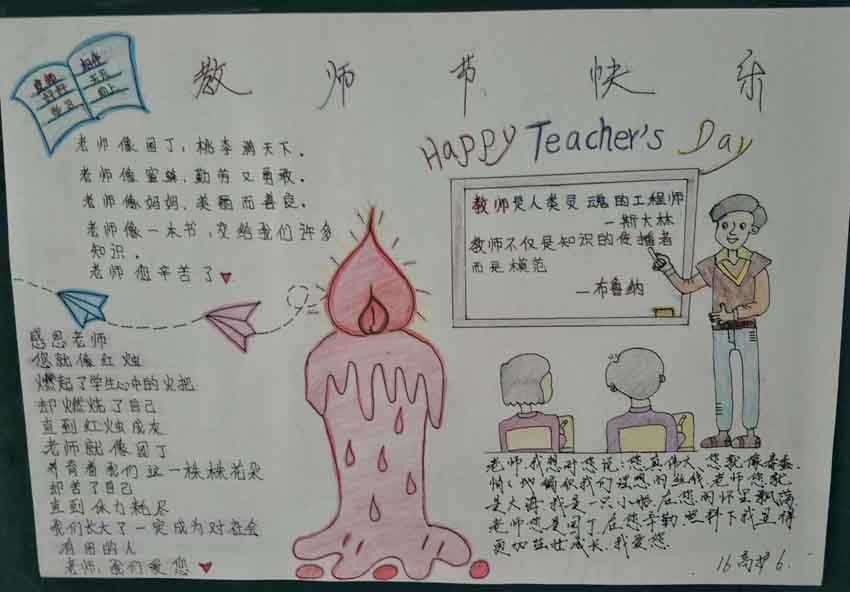 教师节快乐
Happy Teacher's Day
良师
好好
学习
相伴
天天
向上
老师像园丁，桃李满天下。
老师像蜜蜂，勤劳又勇敢。
老师像妈妈，美丽而善良。
老师像一本书，交给我们许多
知识。
老师您辛苦了
教师是人类灵魂的工程师
—斯大林
教师不仅是知识的传播者
而是模范
—布鲁纳
感恩老师
您就像红烛
燃起了学生心中的火把
却燃烧了自己
直到红烛成灰
老师就像园丁
养育着我们这一株株花朵
却苦了自己
直到体力耗尽
我们长大了一定成为对社会
有用的人
老师，我们爱您
老师，我想对您说：您真伟大，您就像春蚕，
悄悄编织我们理想的丝线，老师您就
是大海，我是一只小船，在您的怀里飘荡
老师您是园丁，在您辛勤照料下我显得
更加茁壮成长，我爱您
16高护6.